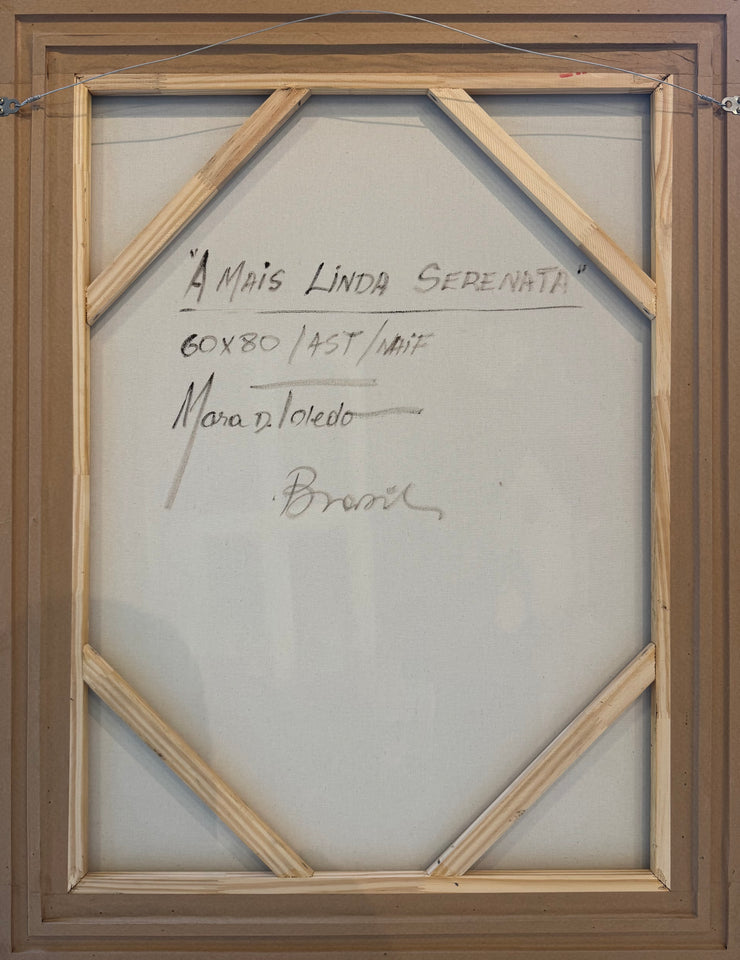 "A MAIS LINDA SERENATA"
60X80 / AST / NAIF
Mara D. Toledo
Brasil